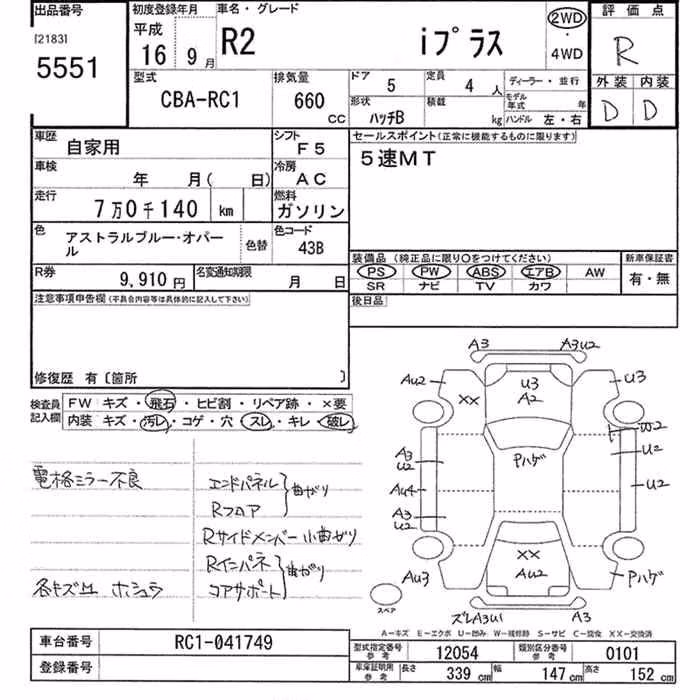 出品番号 初度登録年月 車名・グレード 評価点
[2183] 平成 2WD
5551 16 9月 R2 iプラス ・ R
4WD
型式 排気量 ドア 5 定員 4人 ディーラー・並行 外装 内装
CBA-RC1 660 CC 形状 ハッチB 積載 kg モデル年式 年 D D
ハンドル 左・右
車歴 自家用 シフト F5 セールスポイント(正常に機能するものに限ります)
車検 年 月( 日) 冷房 AC 5速MT
走行 7万0千140 km 燃料 ガソリン
色 アストラルブルー・オパール 色替 色コード 43B
装備品 (純正品に限り○をつけてください) 新車保証書
R券 9,910円 名変通知期限 月 日 PS PW ABS エアB AW 有・無
SR ナビ TV カワ
注意事項申告欄(不具合内容等は具体的に記入して下さい) 後日品
修復歴 有〔箇所 〕
検査員記入欄 FW キズ・飛石・ヒビ割・リペア跡・×要
内装 キズ・汚レ・コゲ・穴・スレ・キレ・破レ
電格ミラー不良 エンドパネル 曲がり
Rフロア
Rサイドメンバー 小曲がり
Rインパネ 曲がり
各キズ凹 ホシュラ コアサポート
A3 A3U2
AU2 XX U3 A2 U3
W2
A3 U2 Pハゲ U2
AU4 U2
A3 U2
XX
AU3 AU2 Pハゲ
スペア
ズレA3U1 A3
A-キズ E-エクボ U-凹み W-補修跡 S-サビ C-腐食 XX-交換済
車台番号 RC1-041749 型式指定番号 参考 12054 類別区分番号 参考 0101
登録番号 車庫証明用 参考 長さ 339cm 幅 147cm 高さ 152cm